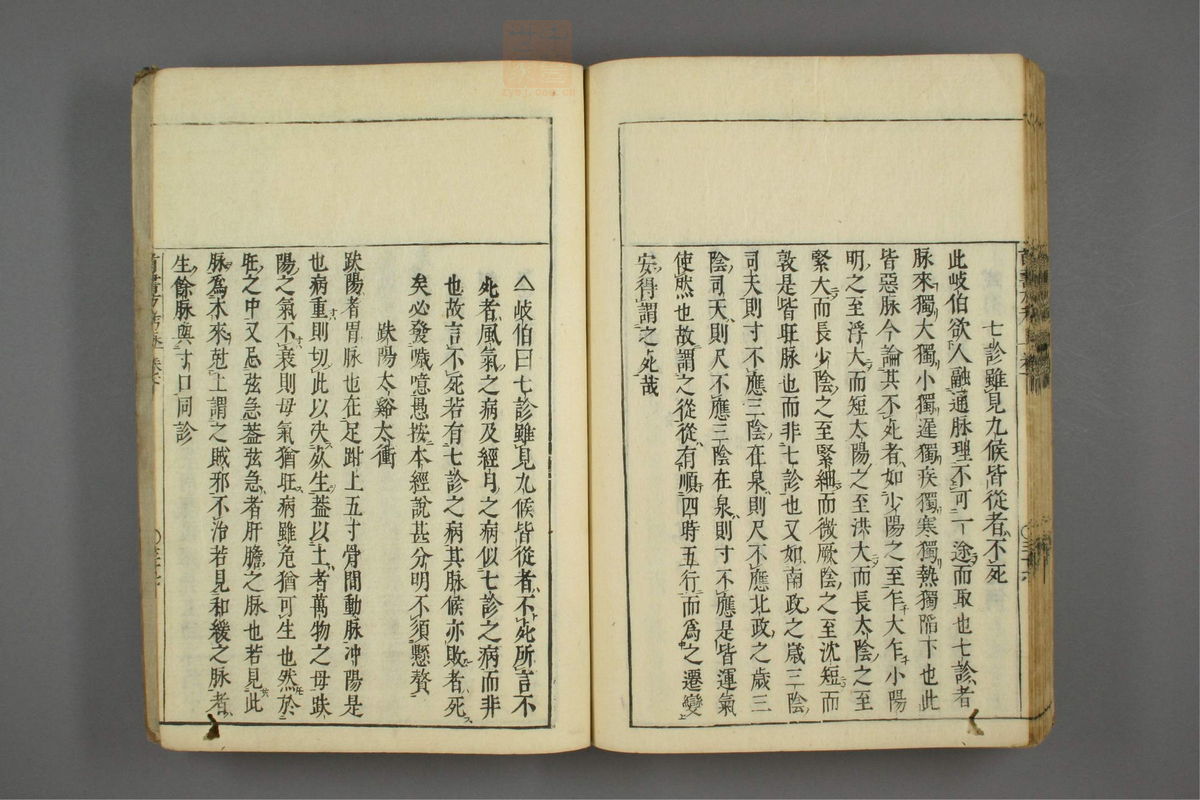 七診雖見九候皆從者不死
此岐伯欲人融通脉理不可一途而取也七診者
脉來獨大獨小獨遲獨疾獨寒獨熱獨陷下也此
皆惡脉今論其不死者如少陽之至乍大乍小陽
明之至浮大而短太陽之至洪大而長太陰之至
緊大而長少陰之至緊細而微厥陰之至沈短而
敦是皆旺脉也而非七診也又如南政之歲三陰
司天則寸不應三陰在泉則尺不應北政之歲三
陰司天則尺不應三陰在泉則寸不應是皆運氣
使然也故謂之從從有順四時五行而爲之遷變
安得謂之死哉
△岐伯曰七診雖見九候皆從者不死所言不
死者風氣之病及經月之病似七診之病而非
也故言不死若有七診之病其脉候亦敗者死
矣必發噦噫愚按本經說甚分明不須懸贅
趺陽太谿太衝
趺陽者胃脉也在足跗上五寸骨間動脉冲陽是
也病重則切此以决死生蓋以土者萬物之母趺
陽之氣不衰則母氣猶旺病雖危猶可生也然於
旺之中又忌弦急蓋弦急者肝膽之脉也若見此
脉爲木來尅土謂之賊邪不治若見和緩之脉者
生餘脉與寸口同診